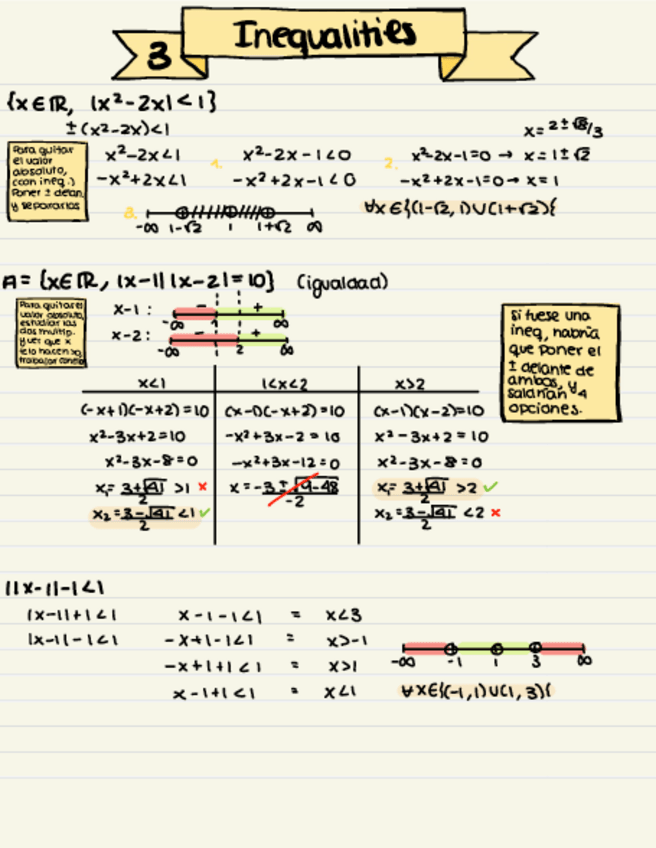 3
Inequalities
{x∈ℝ, |x²-2x|<1}
±(x²-2x)<1
x=2±√8/3
Para quitar
el valor
absoluto,
(con ineq.)
Poner ± delan,
y separarlas
x²-2x<1 1. x²-2x-1<0 2. x²-2x-1=0 → x=1±√2
-x²+2x<1 -x²+2x-1<0 -x²+2x-1=0 → x=1
3.
-∞ 1-√2 1 1+√2 ∞
∀x∈{(1-√2, 1)∪(1+√2){
A={x∈ℝ, |x-1||x-2|=10} (igualdad)
Para quitar el
valor absoluto,
estudiar las
dos multip.
y ver que x
x-1: - +
-∞ 1 ∞
x-2: - +
-∞ 2 ∞
Si fuese una
ineq, habría
que poner el
± delante de
ambos, y
saldrían 4
opciones.
x<1 1<x<2 x>2
(-x+1)(-x+2)=10 (x-1)(-x+2)=10 (x-1)(x-2)=10
x²-3x+2=10 -x²+3x-2=10 x²-3x+2=10
x²-3x-8=0 -x²+3x-12=0 x²-3x-8=0
x₁=3+√41/2 >1 ✗ x=-3±√9-48/-2 x₁=3+√41/2 >2 ✓
x₂=3-√41/2 <1 ✓ x₂=3-√41/2 <2 ✗
||x-1|-1<1
|x-1|+1<1 x-1-1<1 = x<3
|x-1|-1<1 -x+1-1<1 = x>-1
-x+1+1<1 = x>1
x-1+1<1 = x<1
-∞ -1 1 3 ∞
∀x∈{(-1,1)∪(1,3){